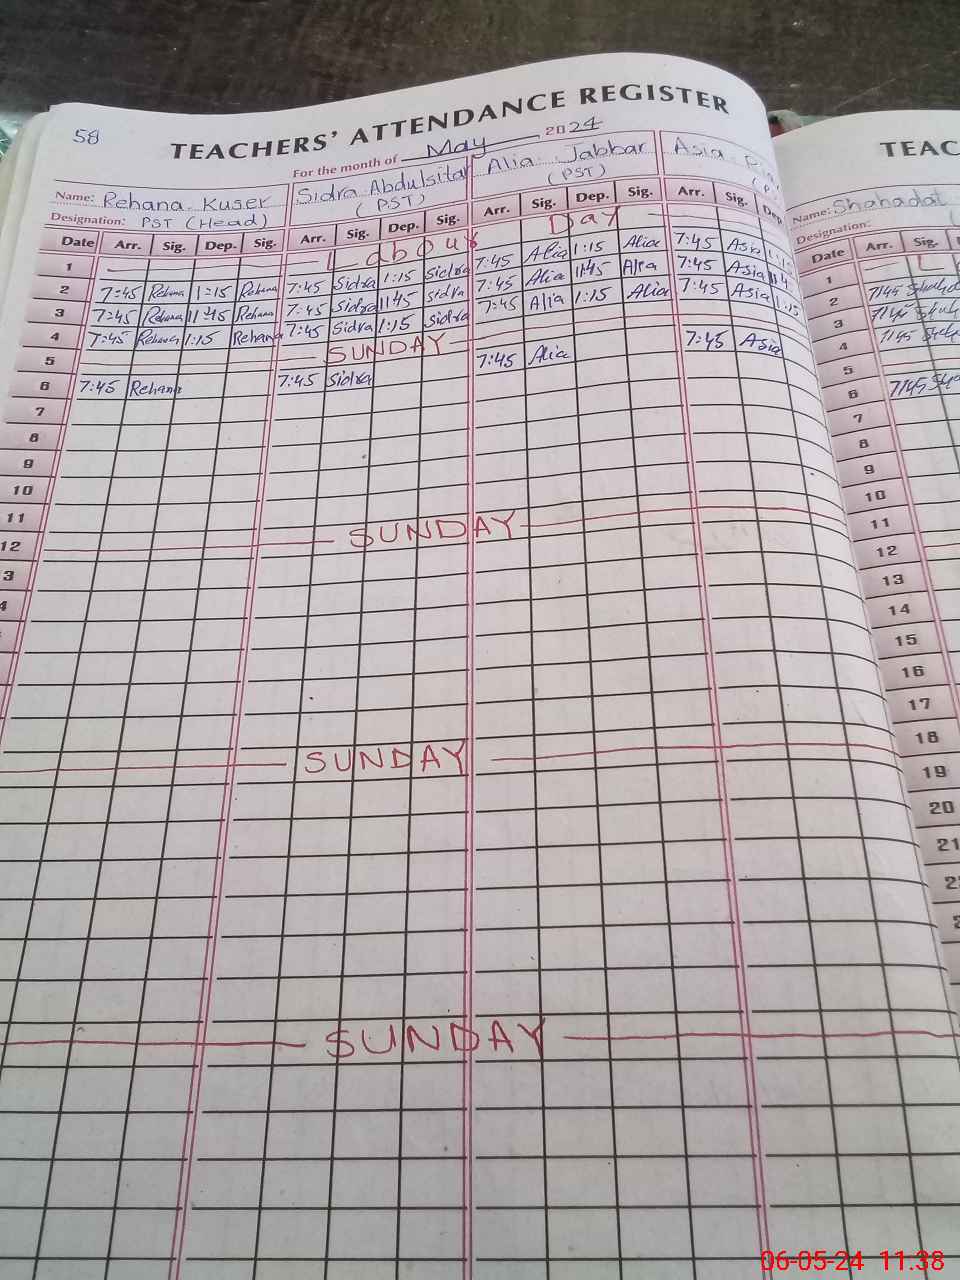 58
TEACHERS' ATTENDANCE REGISTER
For the month of May 2024
Name: Rehana Kuser Sidra Abdulsitar Alia Jabbar Asia
Designation: PST (Head) (PST) (PST)
Date Arr. Sig. Dep. Sig. Arr. Sig. Dep. Sig. Arr. Sig. Dep. Sig. Arr. Sig. Dep.
1 Labour Day
2 7:45 Rehana 1:15 Rehana 7:45 Sidra 1:15 Sidra 7:45 Alia 1:15 Alia 7:45 Asia 1:15
3 7:45 Rehana 11:45 Rehana 7:45 Sidra 11:45 Sidra 7:45 Alia 11:45 Alia 7:45 Asia
4 7:45 Rehana 1:15 Rehana 7:45 Sidra 1:15 Sidra 7:45 Alia 1:15 Alia 7:45 Asia 1:15
5 SUNDAY
6 7:45 Rehana 7:45 Sidra 7:45 Alia 7:45 Asia
7
8
9
10
11
12 SUNDAY
3
4
SUNDAY
SUNDAY
TEAC
Name: Shahadat
Designation:
Date Arr. Sig.
1 L
2 7:45
3
4 7:45
5
6 7:45
7
8
9
10
11
12
13
14
15
16
17
18
19
20
21
06-05-24 11.38